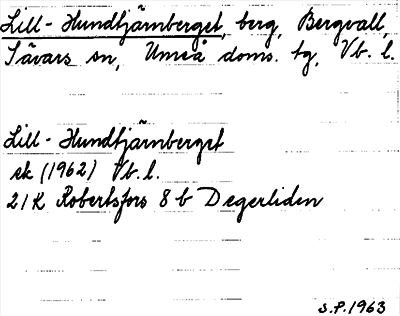 Lill-Hundtjärnberget, berg, Bergvall,
Sävars sn, Umeå doms. tg, Vb. l.
Lill-Hundtjärnberget
ek (1962) Vb. l.
21K Robertsfors 8b Degerliden
S.P. 1963